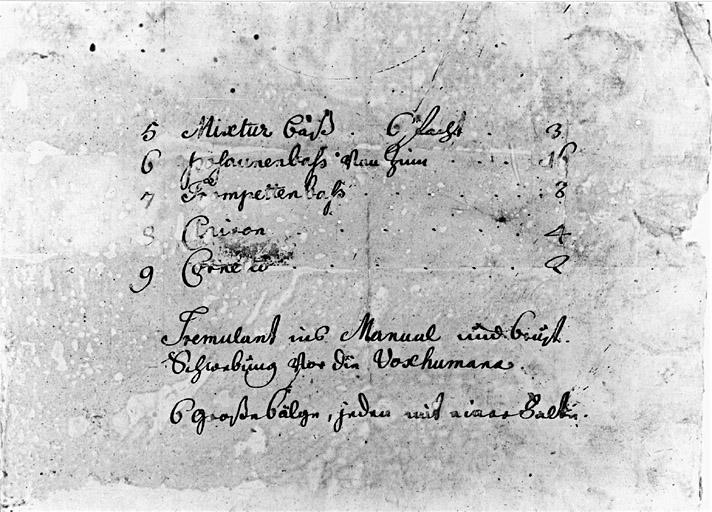 5 Mixtur baß . 6 fach . 3
6 posaunenbaß von Zinn . . . . 16
7 Trompettenbaß . . . . . 8
8 Clairon . . . . . . 4
9 Cornett . . . . . . 2
Tremulant ins Manual und brust.
Schwebung vor die Voxhumana.
6 große bälge, jeden mit einer Falte.